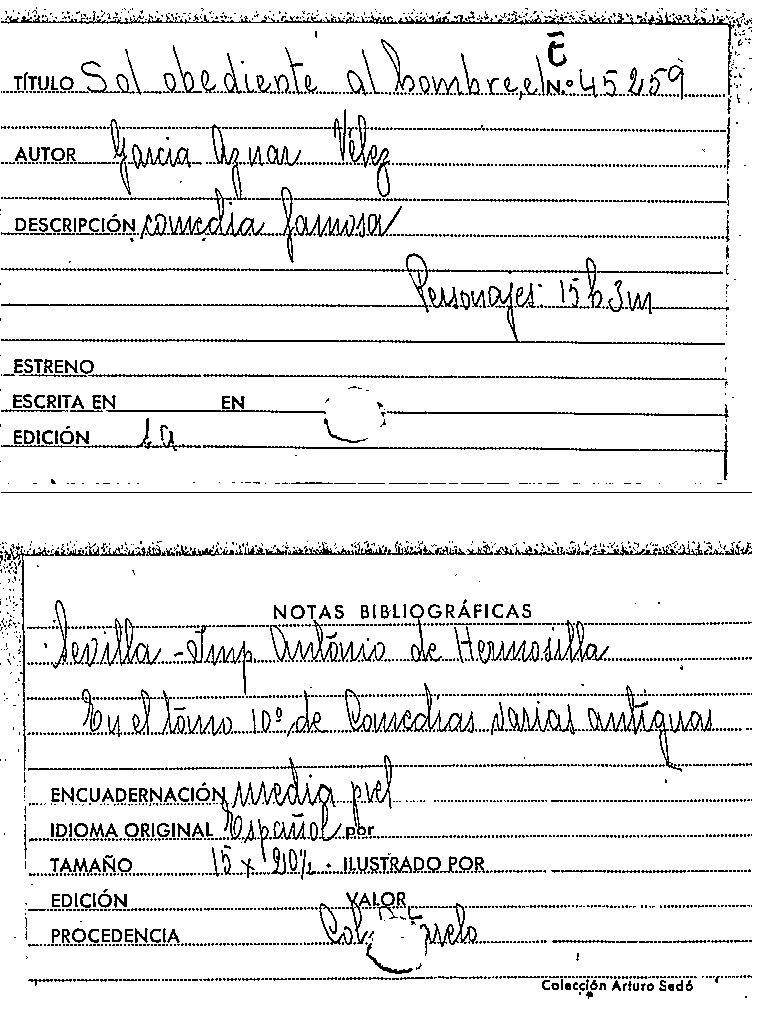 E
TÍTULO Sol obediente al hombre, el N.º 45259
AUTOR Garcia Aznar Vélez
DESCRIPCIÓN comedia famosa
Personajes: 15 h 3 m
ESTRENO
ESCRITA EN EN
EDICIÓN 1a
NOTAS BIBLIOGRÁFICAS
Sevilla - Imp Antonio de Hermosilla
En el tomo 10º de Comedias varias antiguas
ENCUADERNACIÓN media piel
IDIOMA ORIGINAL Español por
TAMAÑO 15 x 20½ ILUSTRADO POR
EDICIÓN VALOR
PROCEDENCIA
Colección Arturo Sedó